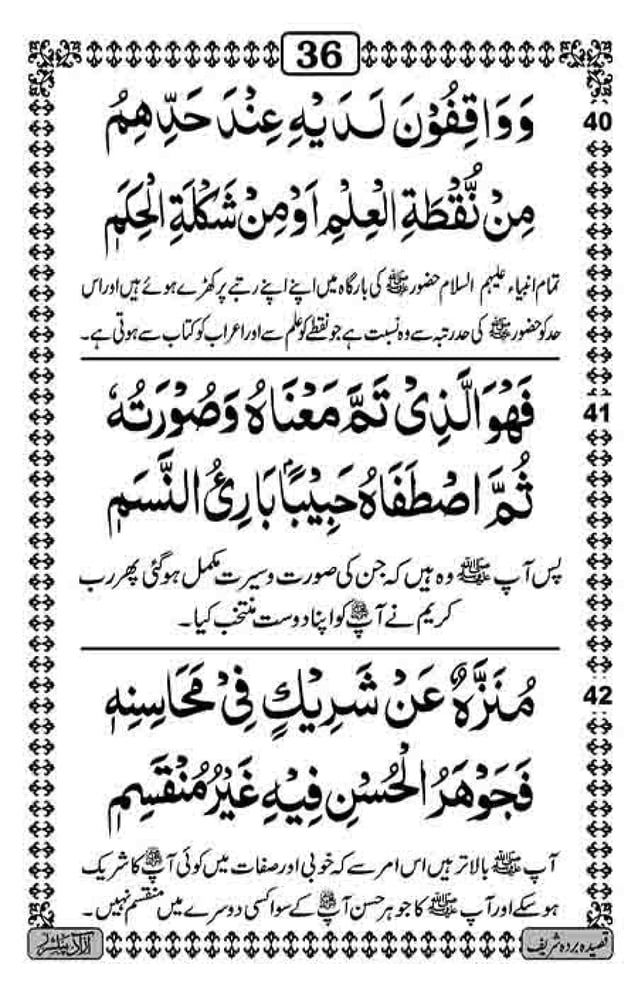 36
40
وَوَاقِفُوْنَ لَدَيْهِ عِنْدَ حَدِّهِمُ
مِنْ نُّقْطَةِ الْعِلْمِ اَوْ مِنْ شَكْلَةِ الْحِكَمِ
تمام انبیاء علیہم السلام حضور ﷺ کی بارگاہ میں اپنے اپنے رتبے پر کھڑے ہوئے ہیں اور اس
حد کو حضور ﷺ کی حد رتبہ سے وہ نسبت ہے جو نقطے کو علم سے اور اعراب کو کتاب سے ہوتی ہے۔
41
فَهْوَ الَّذِيْ تَمَّ مَعْنَاهُ وَصُوْرَتُهٗ
ثُمَّ اصْطَفَاهُ حَبِيْبًا بَارِئُ النَّسَمِ
پس آپ ﷺ وہ ہیں کہ جن کی صورت و سیرت مکمل ہو گئی پھر رب
کریم نے آپ ﷺ کو اپنا دوست منتخب کیا۔
42
مُنَزَّهٌ عَنْ شَرِيْكٍ فِيْ مَحَاسِنِهٖ
فَجَوْهَرُ الْحُسْنِ فِيْهِ غَيْرُ مُنْقَسِمِ
آپ ﷺ بالاتر ہیں اس امر سے کہ خوبی اور صفات میں کوئی آپ ﷺ کا شریک
ہو سکے اور آپ ﷺ کا جوہر حسن آپ ﷺ کے سوا کسی دوسرے میں منقسم نہیں۔
قصیدہ بردہ شریف